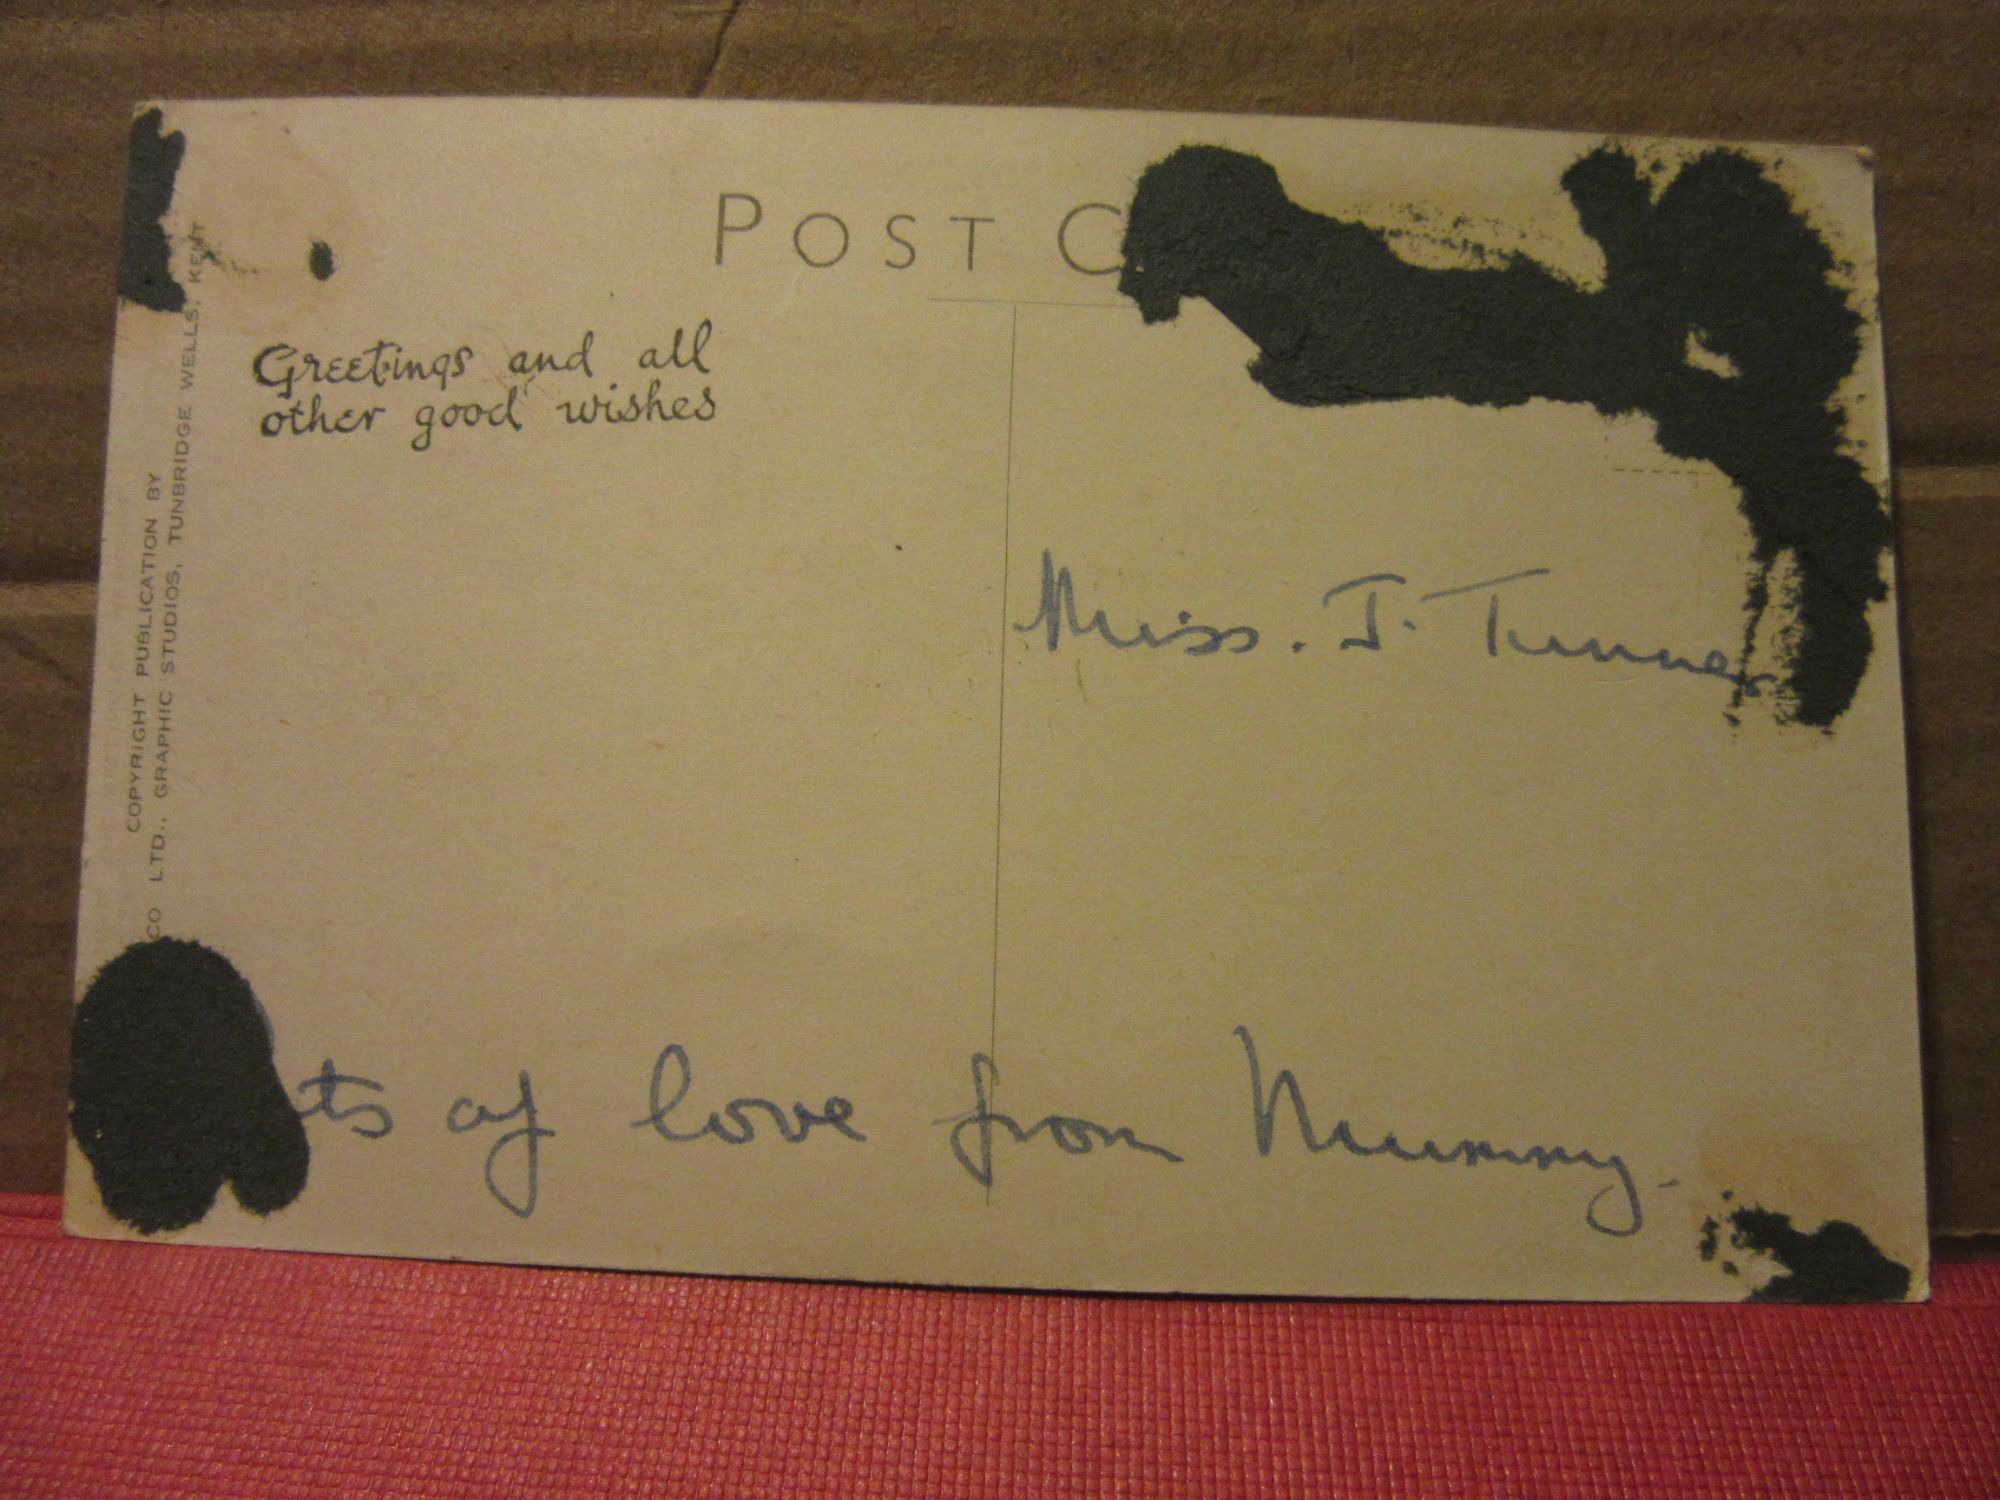 POST C
Greetings and all
other good wishes
COPYRIGHT PUBLICATION BY
CO LTD., GRAPHIC STUDIOS, TUNBRIDGE WELLS, KENT
Miss. J. Turner
ts of love from Mummy.